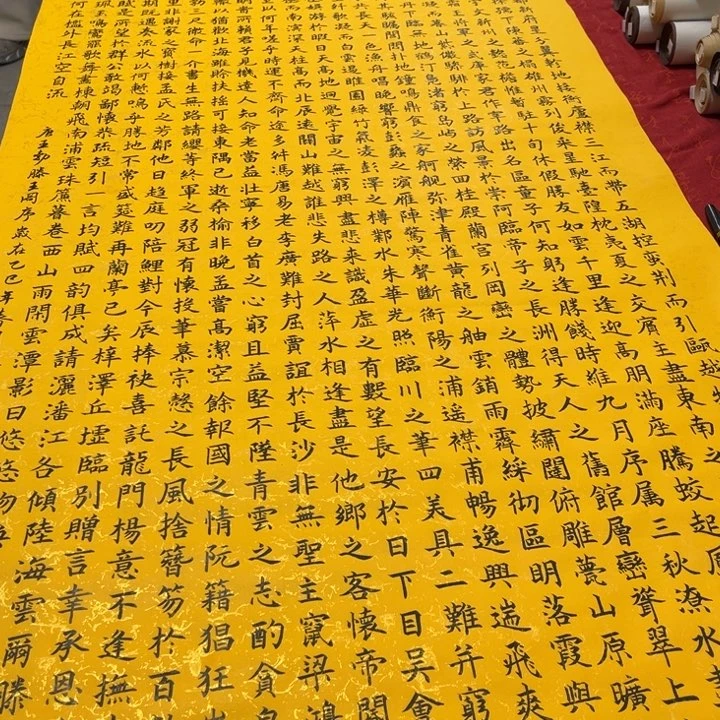 星分翼軫地接衡廬襟三江而帶五湖控蠻荊而引甌越
下陳蕃之榻雄州霧列俊采星馳臺隍枕夷夏之交賓主盡東南之
新州之懿範襜帷暫駐十旬休假勝友如雲千里逢迎高朋滿座騰蛟起
將軍之武庫家君作宰路出名區童子何知躬逢勝餞時維九月序属三秋潦水
儼驂騑於上路訪風景於崇阿臨帝子之長洲得天人之舊館層巒聳翠上
丹臨無地鶴汀鳧渚窮島嶼之縈四桂殿蘭宮列岡巒之體勢披繡闥俯雕甍山原曠
其駭矚閭閻撲地鐘鳴鼎食之家舸艦彌津青雀黃龍之舳雲銷雨霽綵彻區明落霞與
共長天一色漁舟唱晚響窮彭蠡之濱雁陣驚寒聲斷衡陽之浦遙襟甫暢逸興遄飛爽
歌凝而白雲遏睢園綠竹氣凌彭澤之樽鄴水朱華光照臨川之筆四美具二難并窮
娛游於暇日天高地迥覺宇宙之無窮興盡悲來識盈虛之有數望長安於日下目吳會
南溟深天柱高而北辰遠關山難越誰悲失路之人萍水相逢盡是他鄉之客懷帝閽
何年嗟乎時運不齊命途多舛馮唐易老李廣難封屈賈誼於長沙非無聖主竄梁鴻
明時所賴君子見機達人知命老當益壯寧移白首之心窮且益堅不墜青雲之志酌貪
猶歡北海雖賒扶搖可接東隅已逝桑榆非晚孟嘗高潔空餘報國之情阮籍猖狂
勃三尺微命一介書生無路請纓等終軍之弱冠有懷投筆慕宗愨之長風捨簪笏於百
謝家之寶樹接孟氏之芳鄰他日趨庭叨陪鯉對今辰捧袂喜託龍門楊意不逢撫
期既遇奏流水以何慚嗚乎勝地不常盛筵難再蘭亭已矣梓澤丘墟臨別贈言幸承恩
賦是所望於群公敢竭鄙懷恭疏短引一言均賦四韵俱成請灑潘江各傾陸海雲爾滕
珮玉鳴鸞罷歌舞畫棟朝飛南浦雲珠簾暮卷西山雨閑雲潭影日悠悠物
何在檻外長江空自流
唐王勃滕王閣序歲在乙巳年春